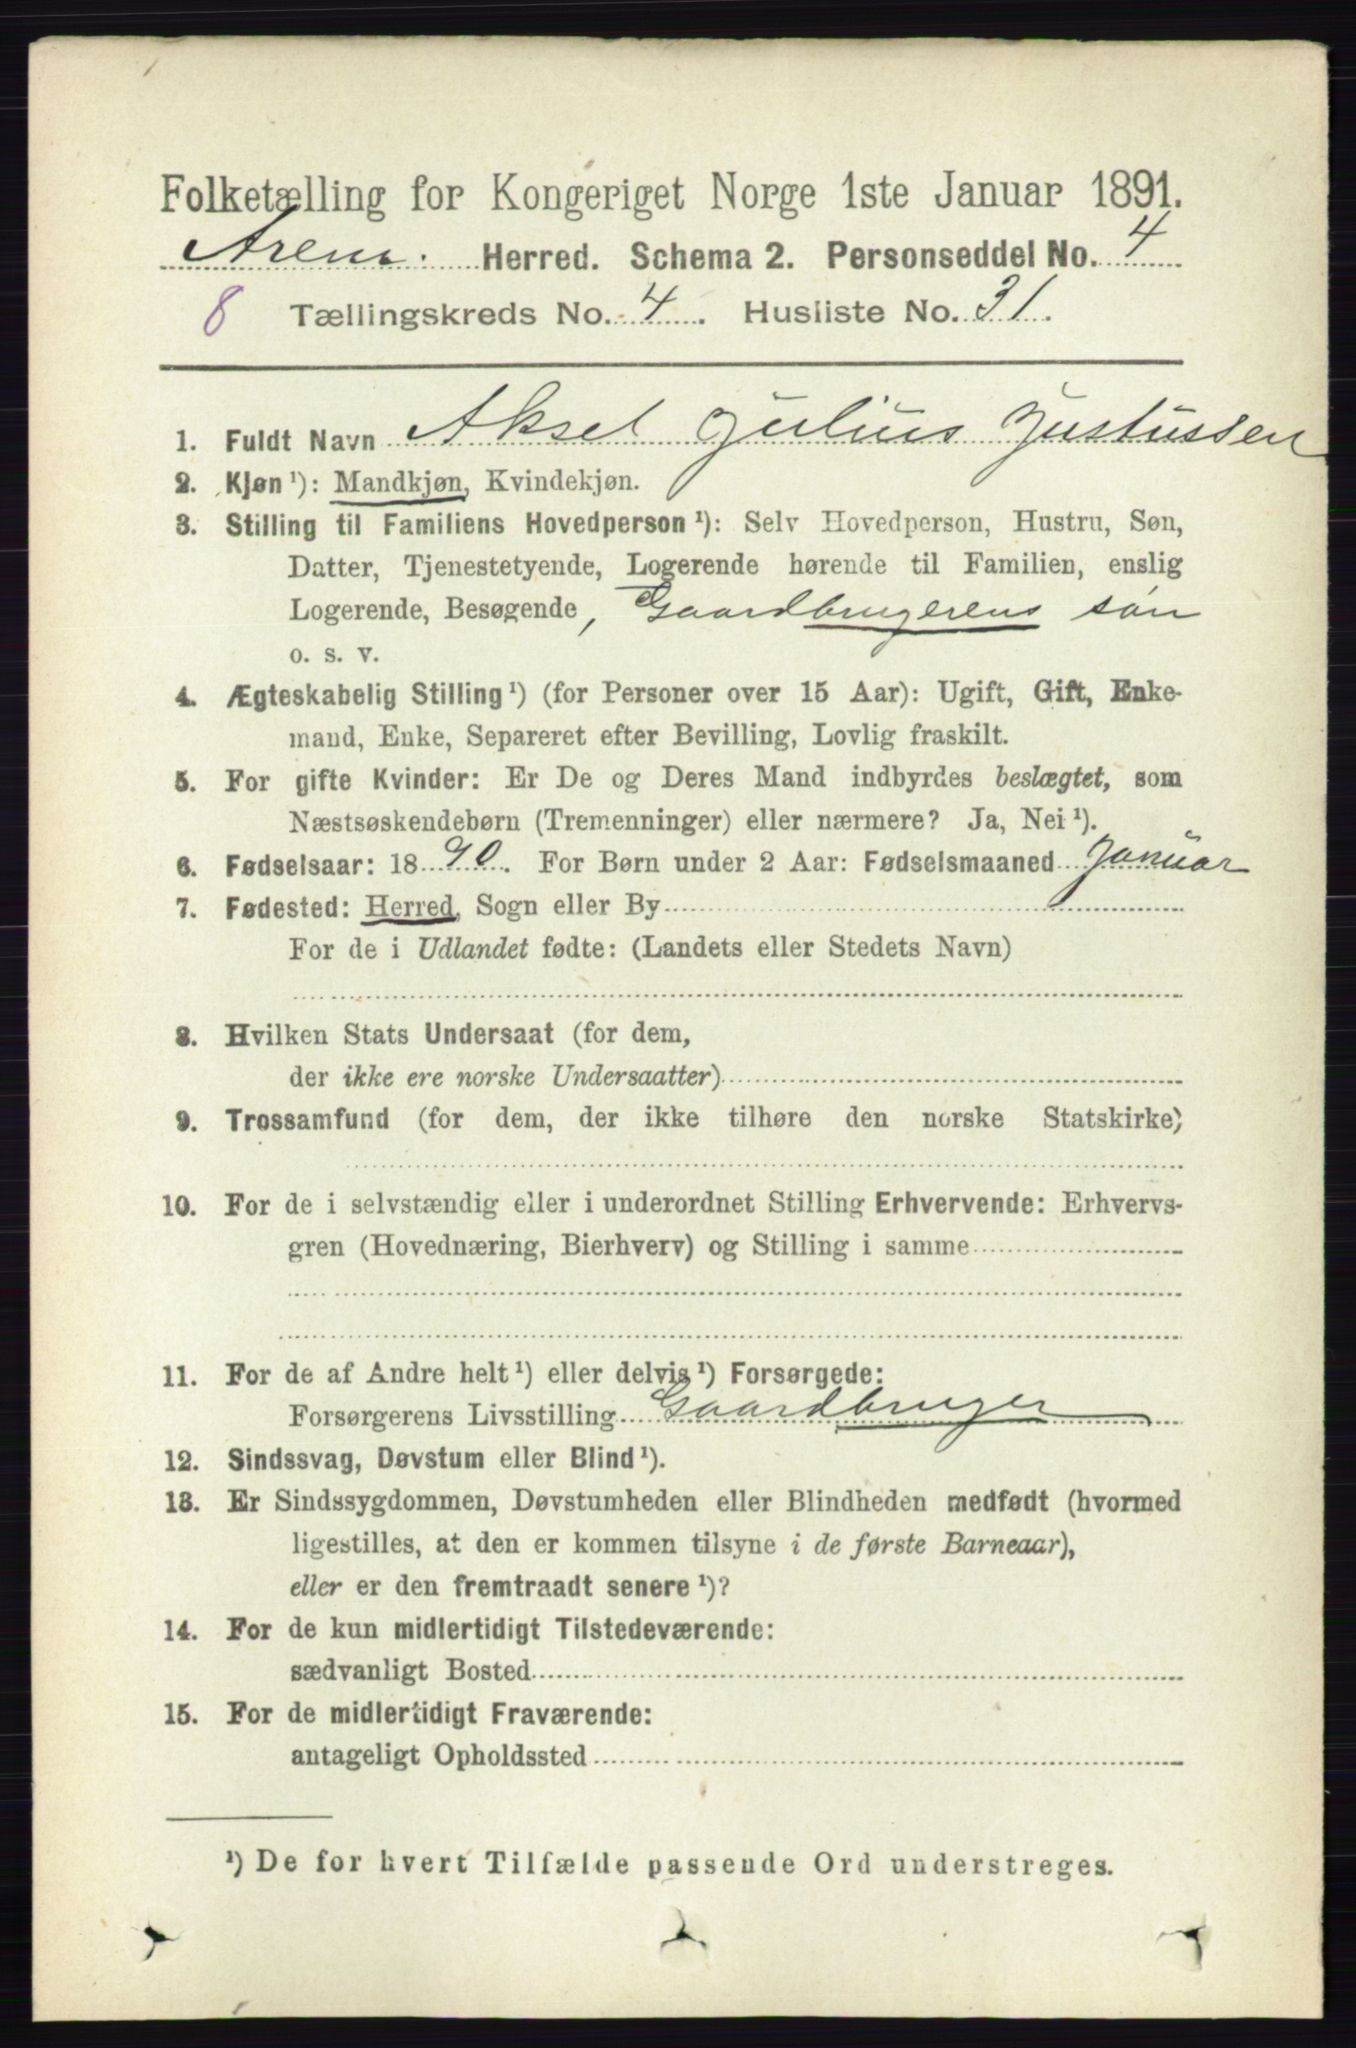 Folketælling for Kongeriget Norge 1ste Januar 1891.
Arem. Herred. Schema 2. Personseddel No. 4
8 Tællingskreds No. 4. Husliste No. 31.
1. Fuldt Navn Aksel Julius Justussen
2. Kjøn¹): Mandkjøn, Kvindekjøn.
3. Stilling til Familiens Hovedperson¹): Selv Hovedperson, Hustru, Søn,
Datter, Tjenestetyende, Logerende hørende til Familien, enslig
Logerende, Besøgende, Gaardbrugerens søn
o. s. v.
4. Ægteskabelig Stilling¹) (for Personer over 15 Aar): Ugift, Gift, Enke-
mand, Enke, Separeret efter Bevilling, Lovlig fraskilt.
5. For gifte Kvinder: Er De og Deres Mand indbyrdes beslægtet, som
Næstsøskendebørn (Tremenninger) eller nærmere? Ja, Nei¹).
6. Fødselsaar: 1890. For Børn under 2 Aar: Fødselsmaaned Januar
7. Fødested: Herred, Sogn eller By
For de i Udlandet fødte: (Landets eller Stedets Navn)
8. Hvilken Stats Undersaat (for dem,
der ikke ere norske Undersaatter)
9. Trossamfund (for dem, der ikke tilhøre den norske Statskirke)
10. For de i selvstændig eller i underordnet Stilling Erhvervende: Erhvervs-
gren (Hovednæring, Bierhverv) og Stilling i samme
11. For de af Andre helt¹) eller delvis¹) Forsørgede:
Forsørgerens Livsstilling Gaardbruger
12. Sindssvag, Døvstum eller Blind¹).
13. Er Sindssygdommen, Døvstumheden eller Blindheden medfødt (hvormed
ligestilles, at den er kommen tilsyne i de første Barneaar),
eller er den fremtraadt senere¹)?
14. For de kun midlertidigt Tilstedeværende:
sædvanligt Bosted
15. For de midlertidigt Fraværende:
antageligt Opholdssted
¹) De for hvert Tilfælde passende Ord understreges.